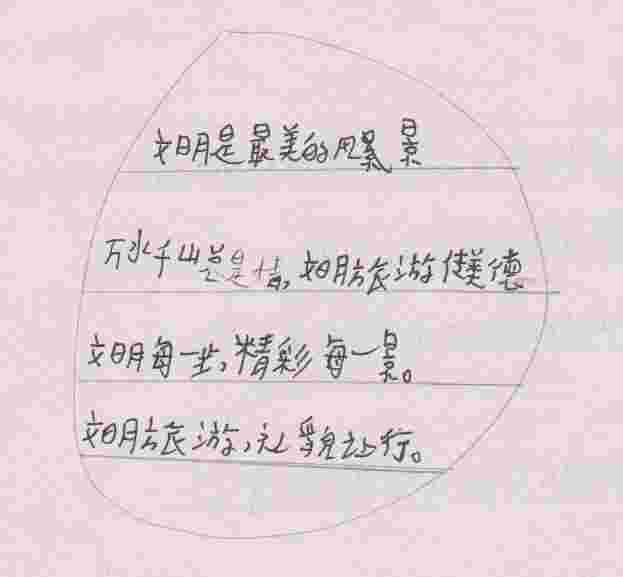 文明是最美的风景
万水千山总是情,文明旅游传美德
文明每一步,精彩每一景。
文明旅游,礼貌让行。